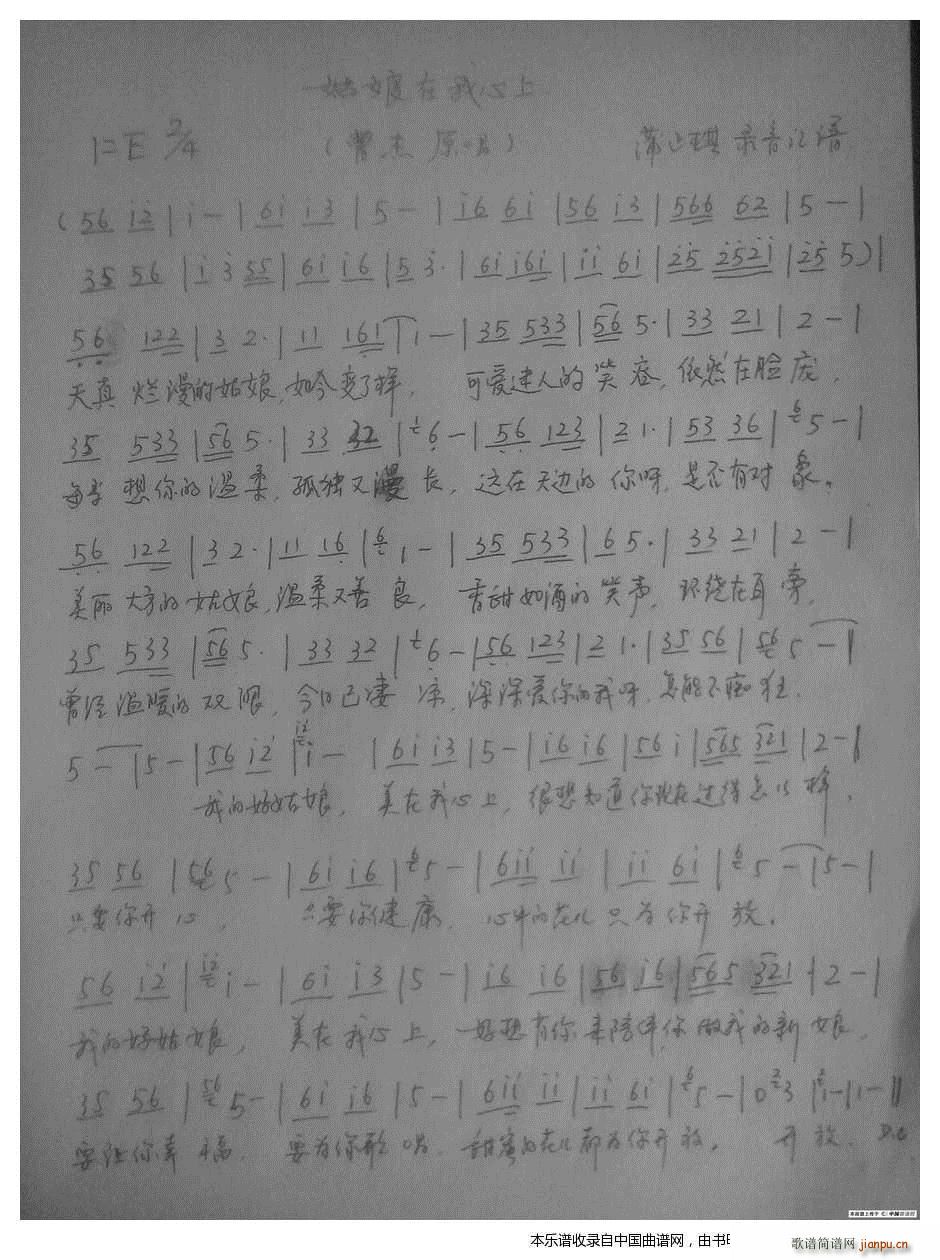 姑娘在我心上
1=E 2/4 (曾杰 原唱) 蒲 琪 录音记谱
(56 i2|i-|6i i3|5-|i6 6i|56 i3|566 62|5-|
35 56|i 3 55|6i i6|5 3·|6i i6i|ii 6i|25 252i|25 5)|
56 122|3 2·|11 161|1-|35 533|56 5·|33 21|2-|
天真 烂漫的姑娘,如今变了样, 可爱迷人的笑容,依然在脸庞,
35 533|56 5·|33 32|6-|56 123|21·|53 36|5-|
每当 想你的温柔,孤独又漫长,远在天边的你呀,是否有对象。
56 122|3 2·|11 16|1-|35 533|6 5·|33 21|2-|
美丽 大方的姑娘,温柔又善良, 香甜如酒的笑声,环绕在耳旁,
35 533|56 5·|33 32|6-|56 123|2 1·|35 56|56 5-|
曾经温暖的双眼,今日已凄凉,深深爱你的我呀,怎能不痴狂.
5-|5-|56 i2|i2 i-|6i i3|5-|i6 i6|56 i|565 321|2-|
我的好姑娘, 美在我心上,很想知道你现在过得怎么样,
35 56|56 5-|6i i6|6 5-|6ii ii|ii 6i|6 5-|5-|
只要你开心, 只要你健康, 心中的花儿只为你开放.
56 i2|i2 i-|6i i3|5-|i6 i6|56 i6|565 321|2-|
我的好姑娘, 美在我心上,好想有你来陪伴,你做我的新娘,
35 56|56 5-|6i i6|5-|6ii ii|ii 6i|6 5-|0 2 3|i-|i-||
要让你幸福, 要为你歌唱, 甜蜜的花儿都为你开放, 开放. D.C
本乐谱收录自中国曲谱网，由书
歌谱简谱网
jianpu.cn